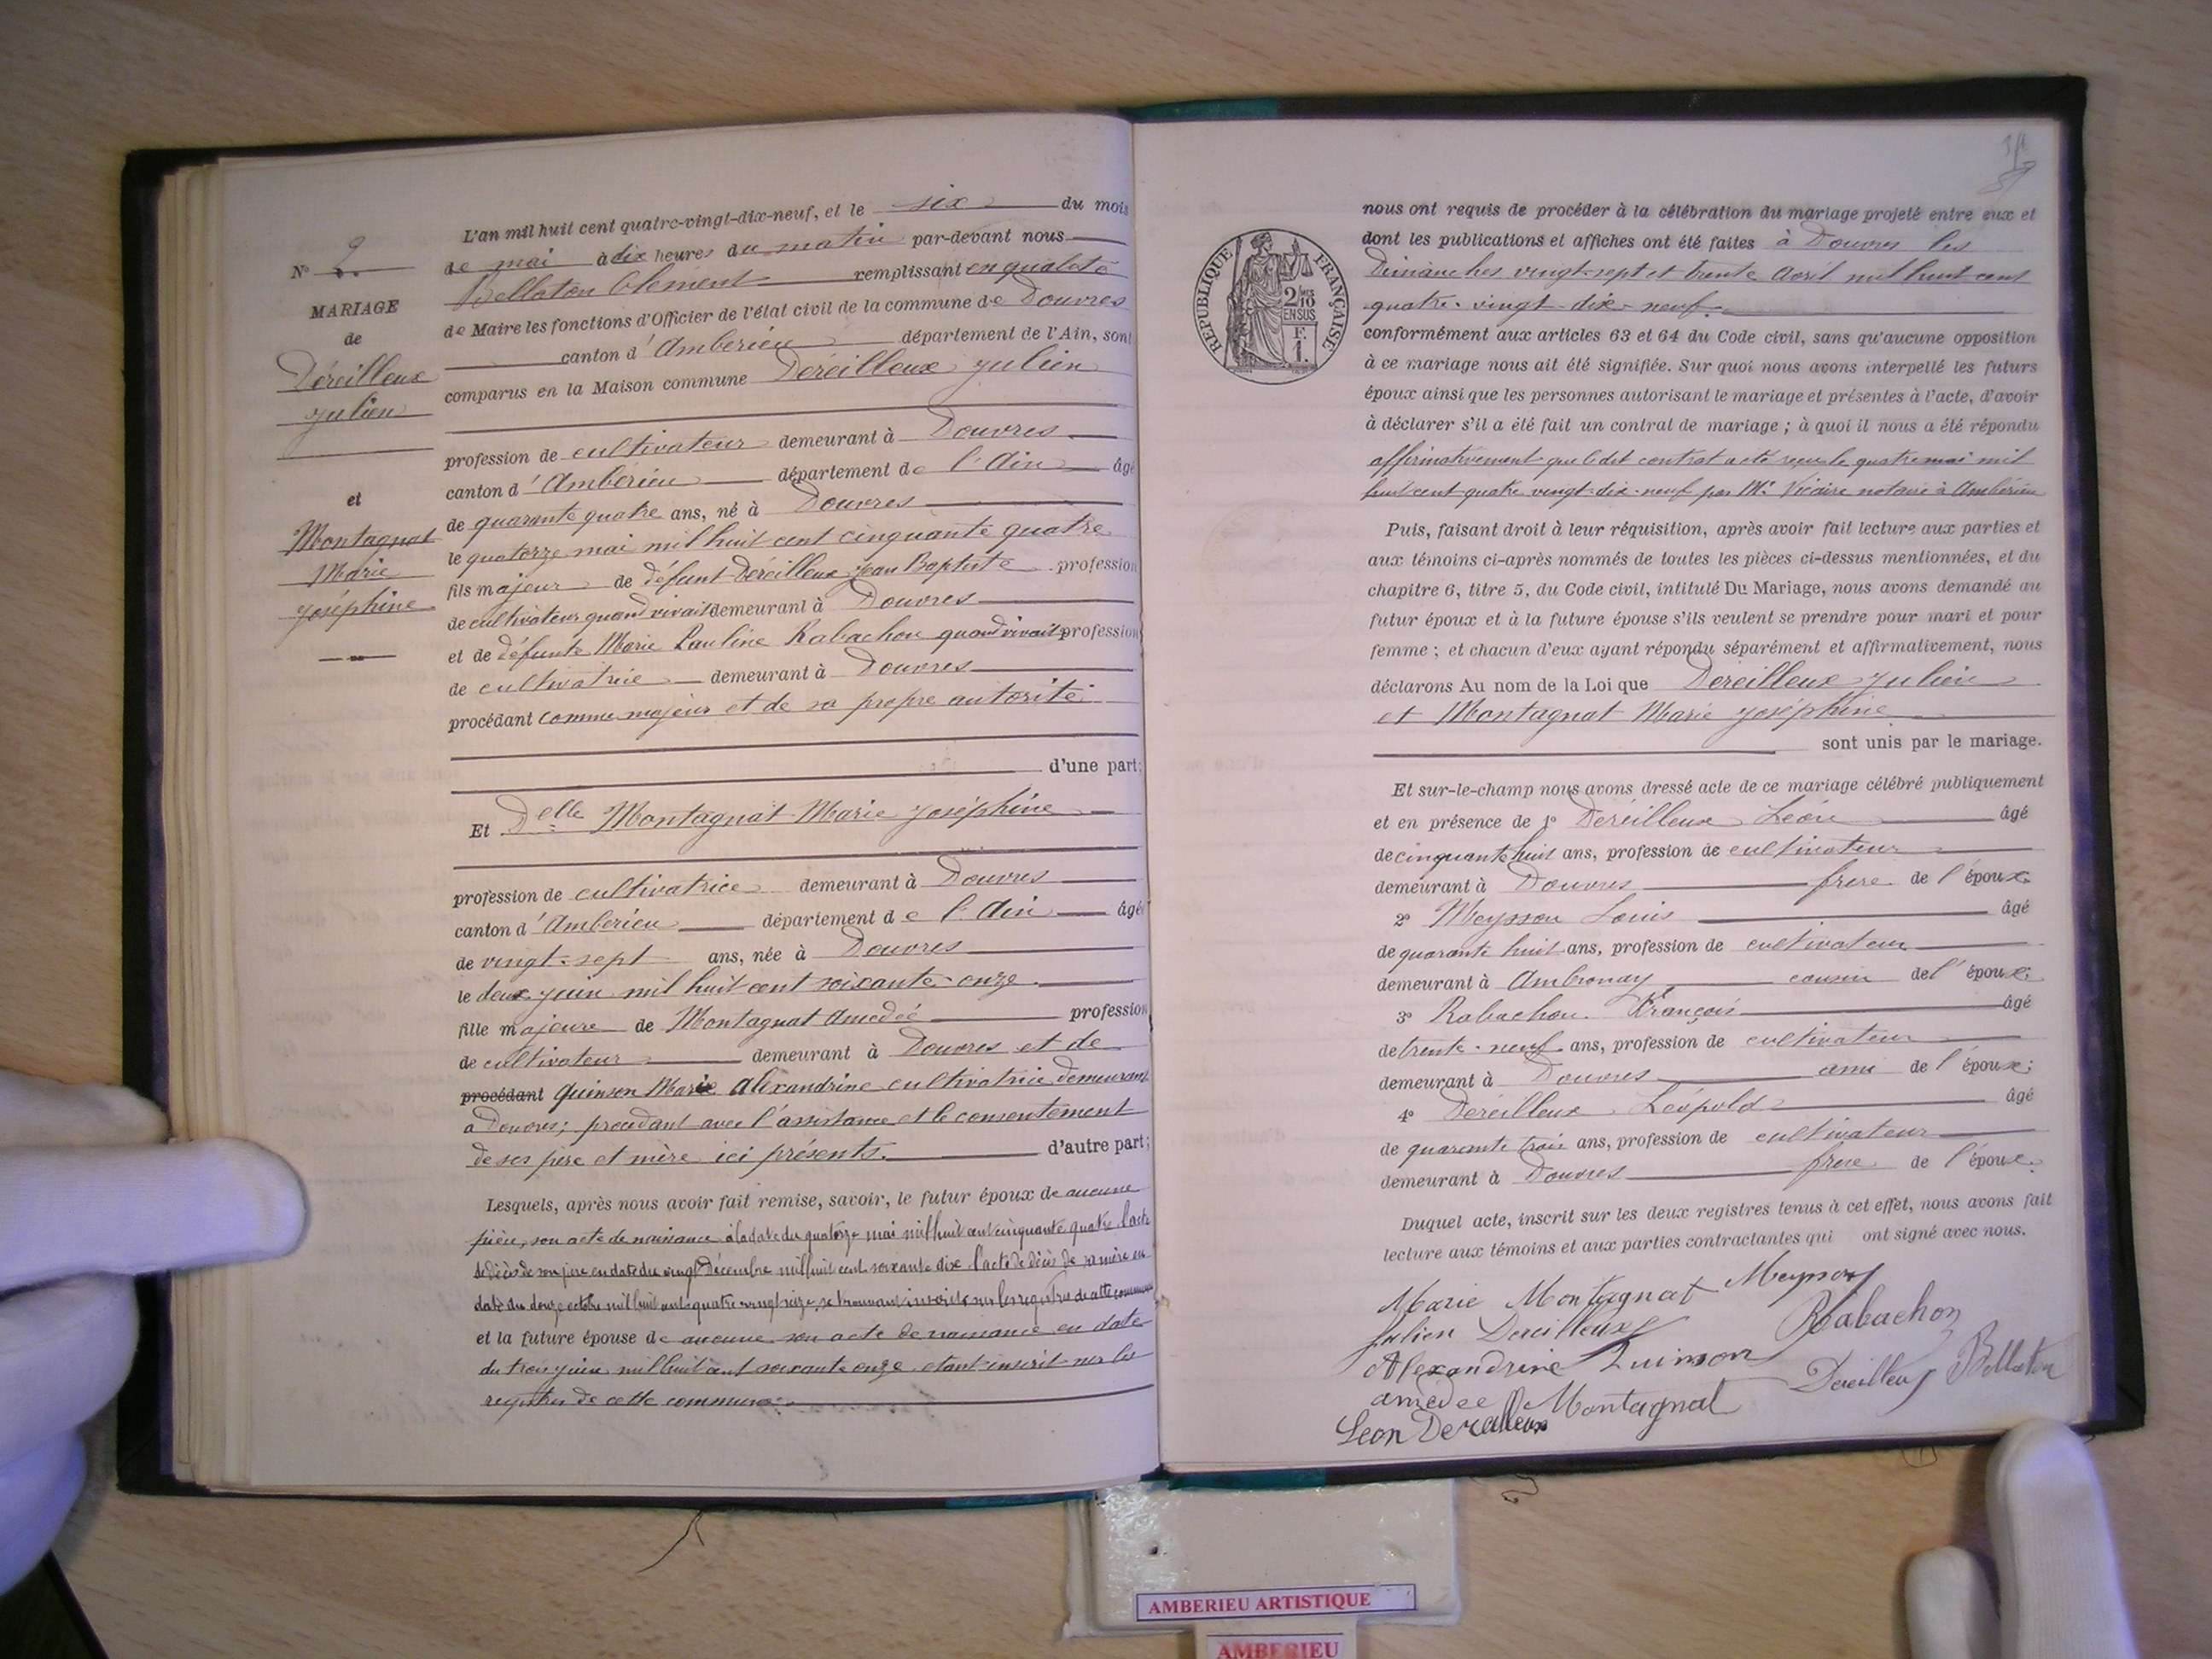 L'an mil huit cent quatre-vingt-dix-neuf, et le six du mois
de mai à dix heures du matin par-devant nous
Bellaton Clément remplissant en qualité
de Maire les fonctions d'Officier de l'état civil de la commune de Douvres
canton d'Ambérieu département de l'Ain, sont
comparus en la Maison commune Déreilleux Julien
profession de cultivateur demeurant à Douvres
canton d'Ambérieu département de l'Ain âgé
de quarante quatre ans, né à Douvres
le quatorze mai mil huit cent cinquante quatre
fils majeur de défunt Dereilleux Jean Baptiste profession
de cultivateur quand vivait demeurant à Douvres
et de défunte Marie Pauline Rabachon quand vivait profession
de cultivatrice demeurant à Douvres
procédant comme majeur et de sa propre autorité
d'une part;
Et Delle Montagnat Marie Joséphine
profession de cultivatrice demeurant à Douvres
canton d'Ambérieu département de l'Ain âgée
de vingt-sept ans, née à Douvres
le deux juin mil huit cent soixante-onze
fille majeure de Montagnat Amédée profession
de cultivateur demeurant à Douvres et de
procédant Quinson Marie Alexandrine cultivatrice demeurant
à Douvres; procédant avec l'assistance et le consentement
de ses père et mère ici présents. d'autre part;
Lesquels, après nous avoir fait remise, savoir, le futur époux de aucune
pièce, son acte de naissance à la date du quatorze mai mil huit cent cinquante quatre l'acte
de décès de son père en date du vingt Décembre mil huit cent soixante dix l'acte de décès de sa mère en
date du douze octobre mil huit cent quatre vingt seize se trouvant inscrits sur les registres de cette commune
et la future épouse de aucune son acte de naissance en date
du trois juin mil huit cent soixante onze étant inscrit sur les
registres de cette commune
N° 2
MARIAGE
de
Déreilleux
Julien
et
Montagnat
Marie
Joséphine
RÉPUBLIQUE FRANÇAISE
2/10
EN SUS
F.
1.
nous ont requis de procéder à la célébration du mariage projeté entre eux et
dont les publications et affiches ont été faites à Douvres les
Dimanches vingt-sept et trente Avril mil huit cent
quatre-vingt-dix-neuf
conformément aux articles 63 et 64 du Code civil, sans qu'aucune opposition
à ce mariage nous ait été signifiée. Sur quoi nous avons interpellé les futurs
époux ainsi que les personnes autorisant le mariage et présentes à l'acte, d'avoir
à déclarer s'il a été fait un contrat de mariage; à quoi il nous a été répondu
affirmativement que ledit contrat a été reçu le quatre mai mil
huit cent quatre vingt-dix-neuf par Me Vicaire notaire à Ambérieu
Puis, faisant droit à leur réquisition, après avoir fait lecture aux parties et
aux témoins ci-après nommés de toutes les pièces ci-dessus mentionnées, et du
chapitre 6, titre 5, du Code civil, intitulé Du Mariage, nous avons demandé au
futur époux et à la future épouse s'ils veulent se prendre pour mari et pour
femme; et chacun d'eux ayant répondu séparément et affirmativement, nous
déclarons Au nom de la Loi que Dereilleux Julien
et Montagnat Marie Joséphine
sont unis par le mariage.
Et sur-le-champ nous avons dressé acte de ce mariage célébré publiquement
et en présence de 1° Déreilleux Léon âgé
de cinquante huit ans, profession de cultivateur
demeurant à Douvres frère de l'époux
2° Meysson Louis âgé
de quarante huit ans, profession de cultivateur
demeurant à Ambronay cousin de l'époux;
3° Rabachon François âgé
de trente-neuf ans, profession de cultivateur
demeurant à Douvres ami de l'époux;
4° Déreilleux Léopold âgé
de quarante trois ans, profession de cultivateur
demeurant à Douvres frère de l'époux.
Duquel acte, inscrit sur les deux registres tenus à cet effet, nous avons fait
lecture aux témoins et aux parties contractantes qui ont signé avec nous.
Marie Montagnat Meysson
Julien Dereilleux Rabachon
Alexandrine Quinson Dereilleux Bellaton
amédée Montagnat
Leon Dereilleux
AMBERIEU ARTISTIQUE
AMBERIEU